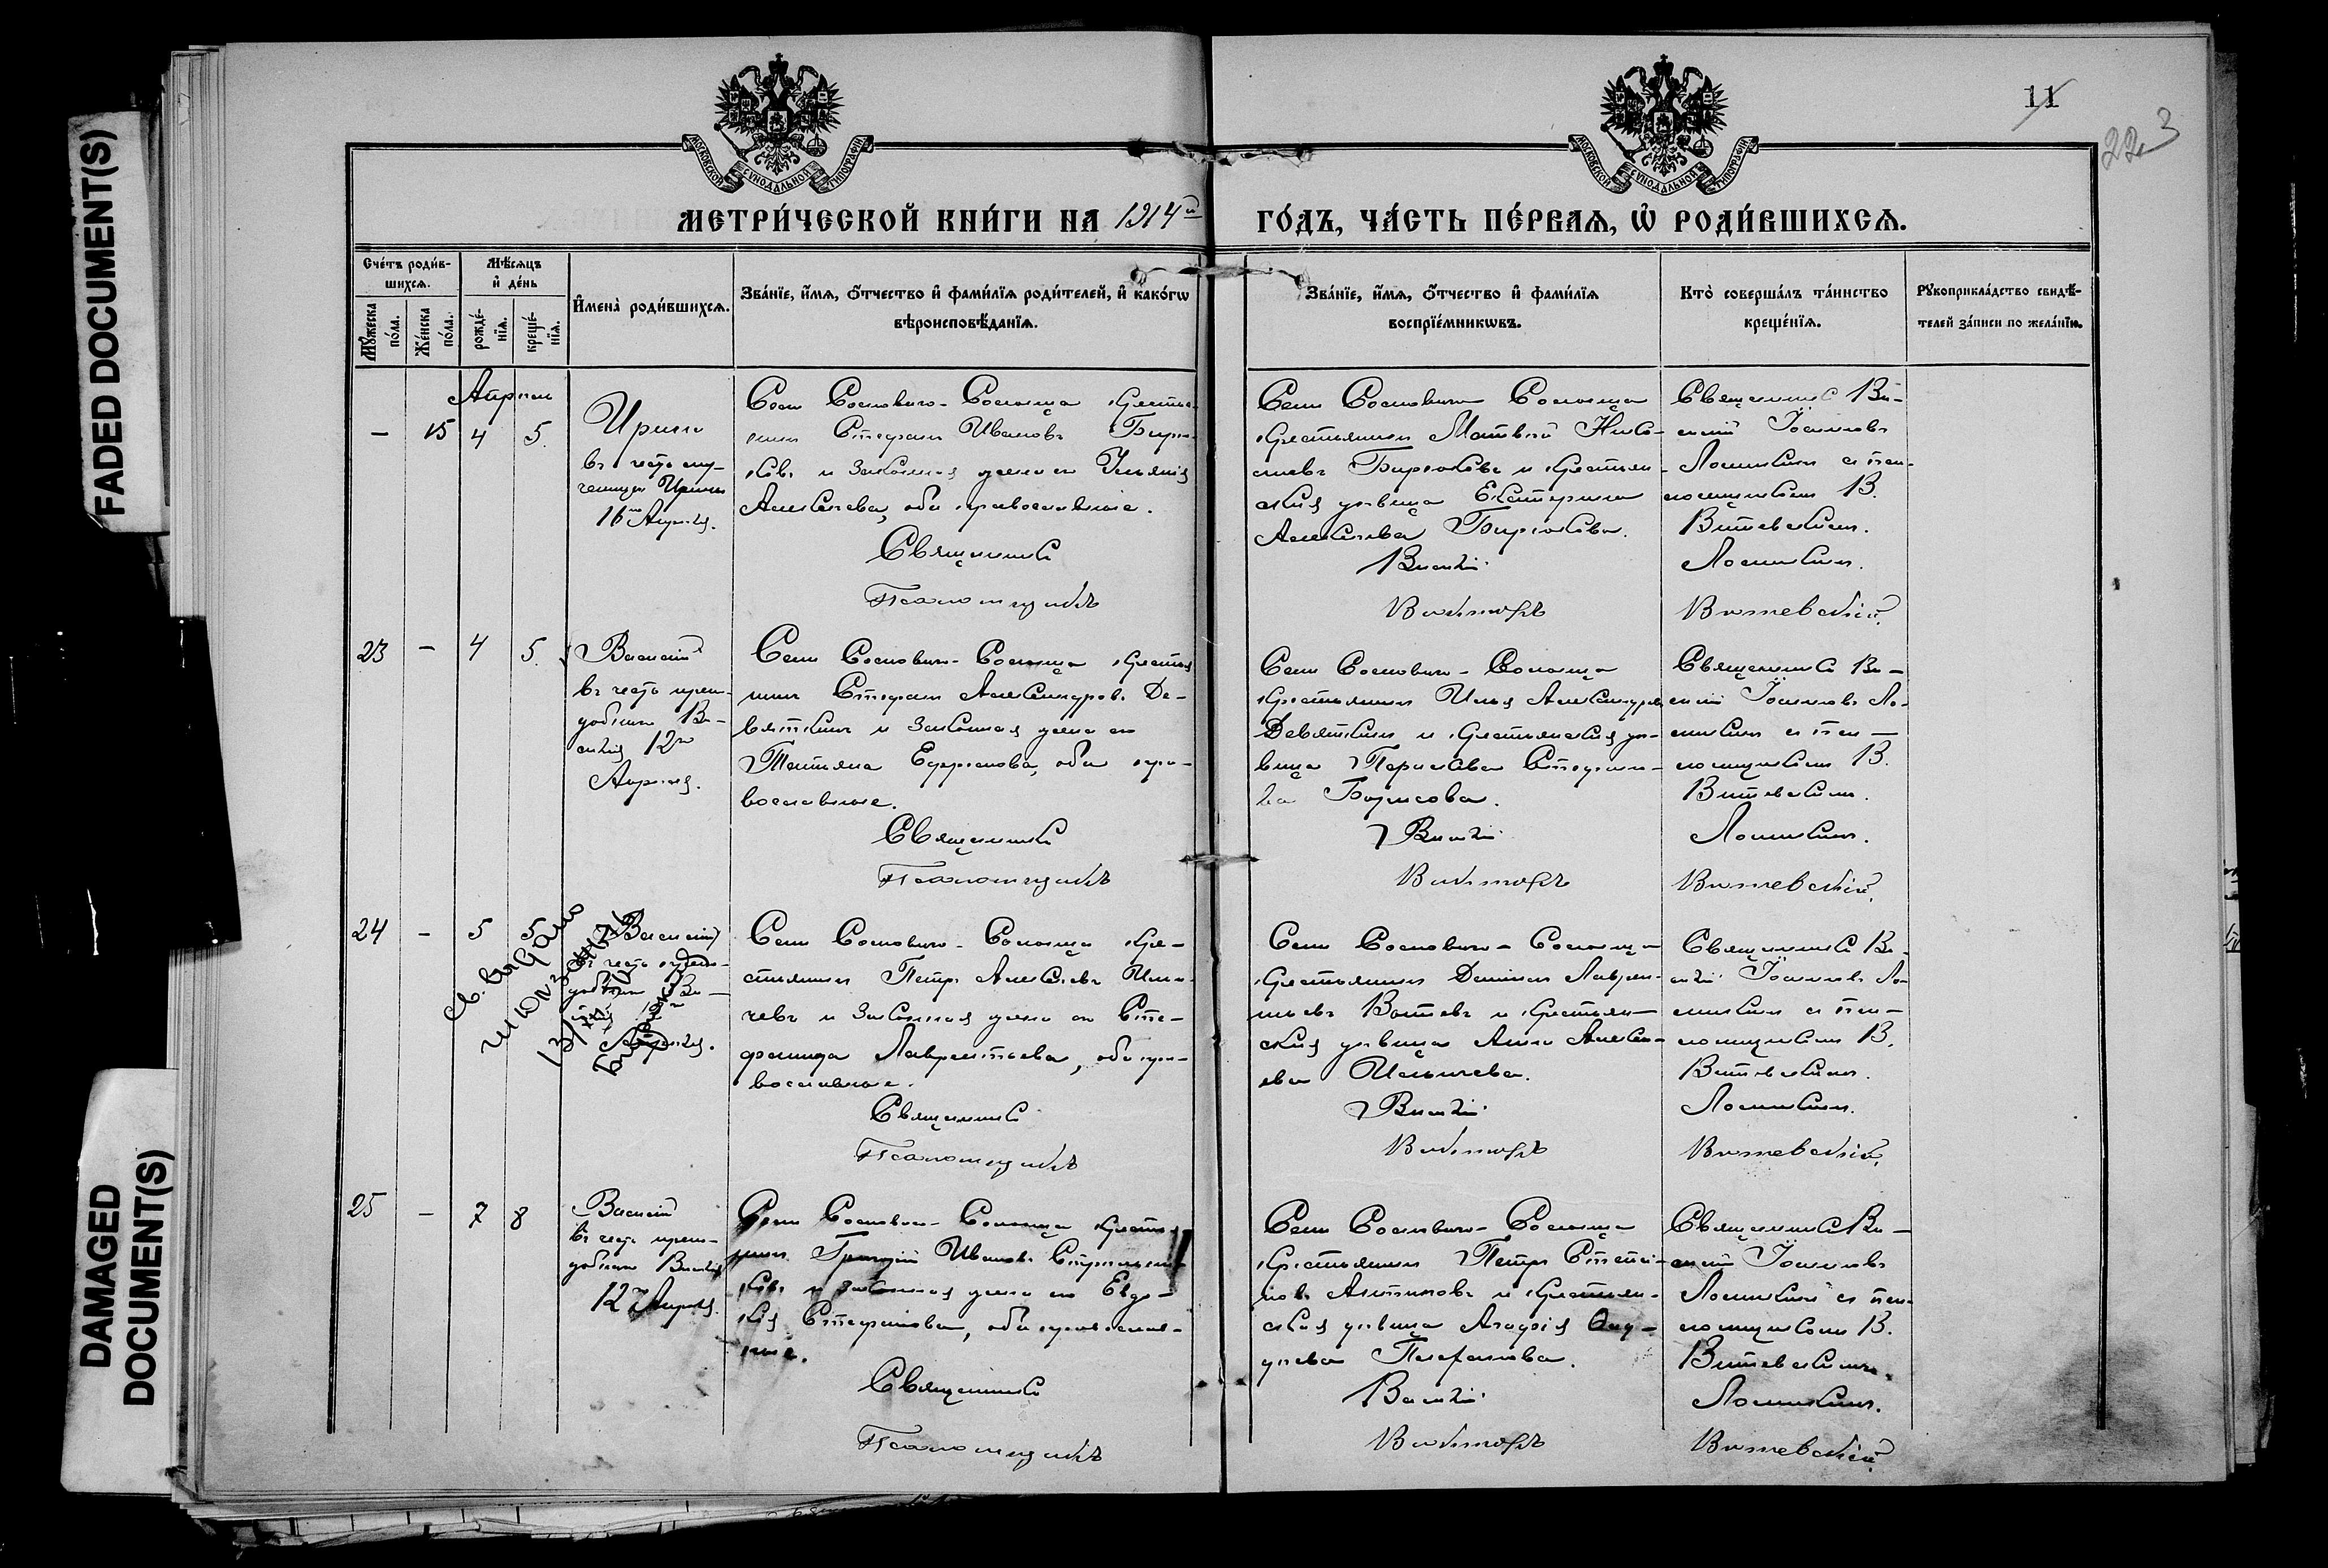 FADED DOCUMENT(S)
DAMAGED
DOCUMENT(S)
МОСКОВСКОЙ СѴНОДАЛЬНОЙ ТИПОГРАФІИ
МОСКОВСКОЙ СѴНОДАЛЬНОЙ ТИПОГРАФІИ
11
223
МЕТРИ́ЧЕСКОЙ КНИ́ГИ НА 1914й
ГО́ДЪ, ЧА́СТЬ ПЕ́РВАѦ, Ѡ҆ РОДИ́ВШИХСѦ.
Сче́тъ роди́в-
шихсѧ.
Мꙋ́жеска по́ла.
Же́нска по́ла.
Мѣ́сѧцъ
и҆ де́нь
рожде́-
нїѧ.
креще́-
нїѧ.
И҆мена̀ роди́вшихсѧ.
Зва́нїе, и҆́мѧ, ѻ҆́тчество и҆ фами́лїѧ роди́телей, и҆ како́гѡ
вѣроисповѣ́данїѧ.
Зва́нїе, и҆́мѧ, ѻ҆́тчество и҆ фами́лїѧ
воспрїе́мникѡвъ.
Кто̀ соверша́лъ та́инство
креще́нїѧ.
Рꙋкоприкла́дство свидѣ́-
телей за́писи по жела́нїю.
Апрѣль
- 15 4 5.
Ирина
въ честь му-
ченицы Ирины
16го Апрѣля.
Села Сосновки- Солонца крестья-
нинъ Стефанъ Ивановъ Бирю-
ковъ и законная жена его
Алексѣева, оба православные.
Священникъ
Псаломщикъ
Села Сосновки Солонца
крестьянинъ Матвѣй Нико-
лаевъ Бирюковъ и крестьян-
ская дѣвица Екатерина
Алексѣева Бирюкова.
Василій
Викторъ
Священникъ Ва-
силій Іоанновъ
Лошкинъ съ пса-
ломщикомъ В.
Витевскимъ.
Лошкинъ.
Витевскій.
23 - 4 5.
Василій
въ честь препо-
добнаго Ва-
силія 12го
Апрѣля.
Села Сосновки- Солонца крестья-
нинъ Стефанъ Александровъ Де-
вяткинъ и законная жена его
Татьяна Ефремова, оба пра-
вославные.
Священникъ
Псаломщикъ
Села Сосновки- Солонца
крестьянинъ Илья Александровъ
Девяткинъ и крестьянская дѣ-
вица Параскева Стефано-
ва Борисова.
Василій
Викторъ
Священникъ Ва-
силій Іоанновъ Ло-
шкинъ съ пса-
ломщикомъ В.
Витевскимъ.
Лошкинъ.
Витевскій.
24 - 5 5
Василій
въ честь препо-
добнаго Ва-
Апрѣля.
св. выдано
13/
Села Сосновки- Солонца кре-
стьянинъ Петръ Алексѣевъ Илю-
чевъ и законная жена его Сте-
фанида Лаврентьева, оба пра-
вославные.
Священникъ
Псаломщикъ
Села Сосновки- Солонца
крестьянинъ Даниилъ Лаврен-
тьевъ и крестьян-
ская дѣвица Анна Алексѣ-
ева
Василій
Викторъ
Священникъ Ва-
силій Іоанновъ Ло-
шкинъ съ пса-
ломщикомъ В.
Витевскимъ.
Лошкинъ.
Витевскій.
25 - 7 8
Василій
въ честь препо-
добнаго Василія
12го Апрѣля.
Села Сосновки- Солонца крестья-
нинъ Григорій Ивановъ
и законная жена его Евдо-
кія Стефанова, оба православ-
ные.
Священникъ
Псаломщикъ
Села Сосновки- Солонца
крестьянинъ Петръ
Антиповъ и крестьян-
ская дѣвица
Василій
Викторъ
Священникъ Ва-
силій Іоанновъ
Лошкинъ съ пса-
ломщикомъ В.
Витевскимъ.
Лошкинъ.
Витевскій.